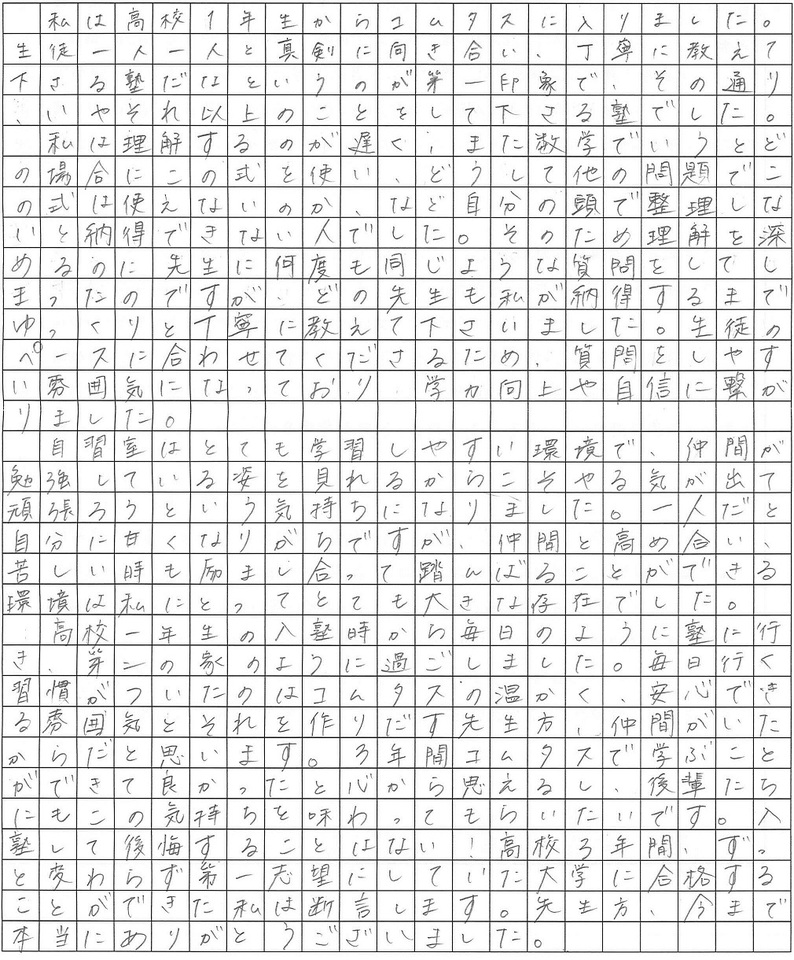 私は高校1年生からコムタスに入りました。
生徒一人一人と真剣に向き合い、丁寧に教えて
下さる塾だなというのが第一印象で、その通り
、いやそれ以上のことをして下さる塾でした。
私は理解するのが遅く、また数学でいうとど
の場合にこの式を使い、どうして他の問題でこ
の式は使えないのか、など自分の頭で整理しな
いと納得できない人でした。そのため理解を深
めるのに先生に何度も同じような質問をしてし
まったのですが、どの先生も私が納得するまで
ゆっくりと丁寧に教えて下さいました。生徒の
ペースに合わせてくださるため、質問をしやす
い雰囲気になっており、学力向上や自信に繋が
りました。
自習室はとても学習しやすい環境で、仲間が
勉強している姿を見れるからこそやる気が出て
頑張ろうという気持ちになりました。一人だと
自分に甘くなりがちですが、仲間と高め合い、
苦しい時も励まし合って踏んばることができる
環境は私にとってとても大きな存在でした。
高校一年生の入塾時から毎日のように塾に行
き、第二の家のように過ごしました。毎日行く
習慣がついたのはコムタスの温かく、安心でき
る雰囲気とそれを作りだす先生方、仲間がいた
からだと思います。3年間コムタスで学ぶこと
ができて良かったと心から思えるし、後輩たち
にもこの気持ちを味わってもらいたいです。入
塾して後悔することはない！高校3年間、ずっ
と変わらず第一志望にしていた大学に合格する
ことができた私は断言します。先生方、今まで
本当にありがとうございました。